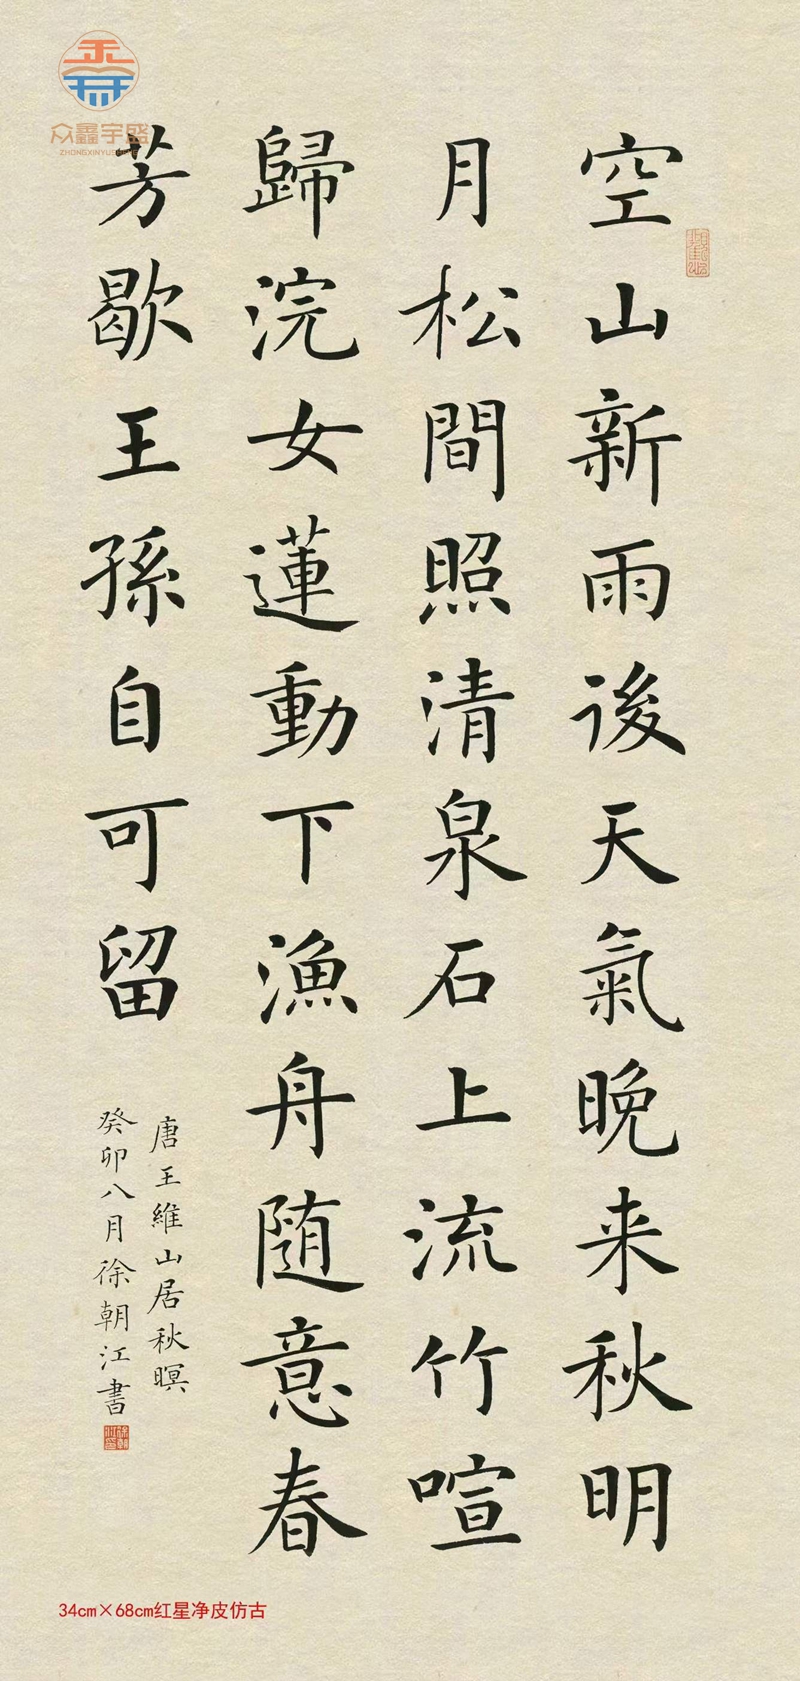 空山新雨後天氣晚来秋明
月松間照清泉石上流竹喧
歸浣女蓮動下漁舟随意春
芳歇王孫自可留
唐王維山居秋暝
癸卯八月徐朝江書
众鑫宇盛
34cm×68cm红星净皮仿古